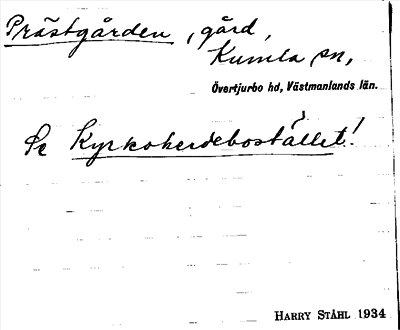 Prästgården, gård,
Kumla sn,
Övertjurbo hd, Västmanlands län.
Se Kyrkoherdebostället!
HARRY STÅHL 1934